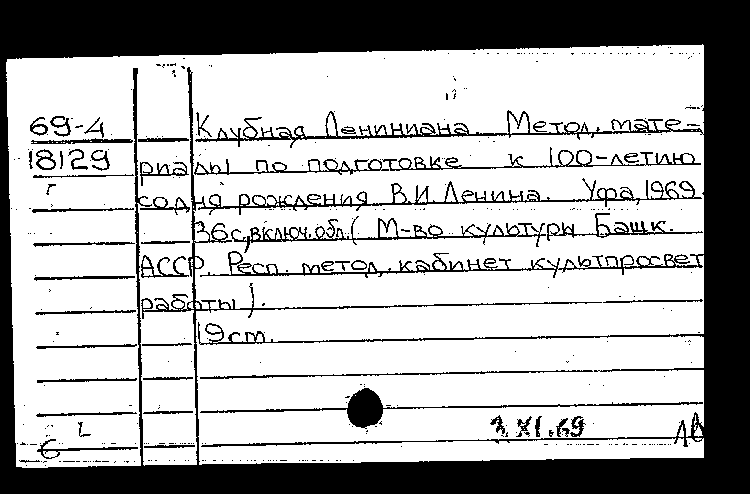 69-4 Клубная Лениниана. Метод. мате-
18129 риалы по подготовке к 100-летию
г со дня рождения В.И. Ленина. Уфа, 1969.
36с., включ. обл. (М-во культуры Башк.
АССР. Респ. метод. кабинет культпросвет
работы).
19 см.
3 XI.69
6